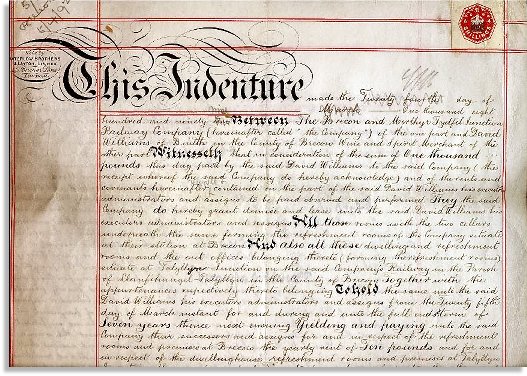 WATERLOW BROTHERS
& LAYTON, LONDON
This Indenture
made the Twenty fourth day of
March One thousand eight
hundred and ninety Between The Brecon and Merthyr Tydfil Junction
Railway Company (hereinafter called "the Company") of the one part and David
Williams of Builth in the County of Brecon Wine and Spirit Merchant of the
other part Witnesseth that in consideration of the sum of One thousand
pounds this day paid by the said David Williams to the said Company (the
receipt whereof the said Company do hereby acknowledge) and of the rents and
covenants hereinafter contained on the part of the said David Williams his executors
administrators and assigns to be paid observed and performed They the said
Company do hereby grant demise and lease unto the said David Williams his
executors administrators and assigns All those rooms with the two cellars
underneath the same forming the refreshment rooms of the Company situate
at their station at Brecon And also all those dwelling and refreshment
rooms and the out offices belonging thereto (forming the refreshment rooms)
situate at Talyllyn Junction on the said Company's Railway in the Parish
of Llanfihangel Talyllyn in the County of Brecon Together with the
appurtenances respectively thereto belonging To hold the same unto the said
David Williams his executors administrators and assigns from the Twenty fifth
day of March instant for and during and unto the full end and term of
Seven years thence next ensuing Yielding and paying unto the said
Company their successors and assigns for and in respect of the refreshment
rooms and premises at Brecon the yearly rent of Ten pounds and for and
in respect of the dwellinghouse refreshment rooms and premises at Talyllyn